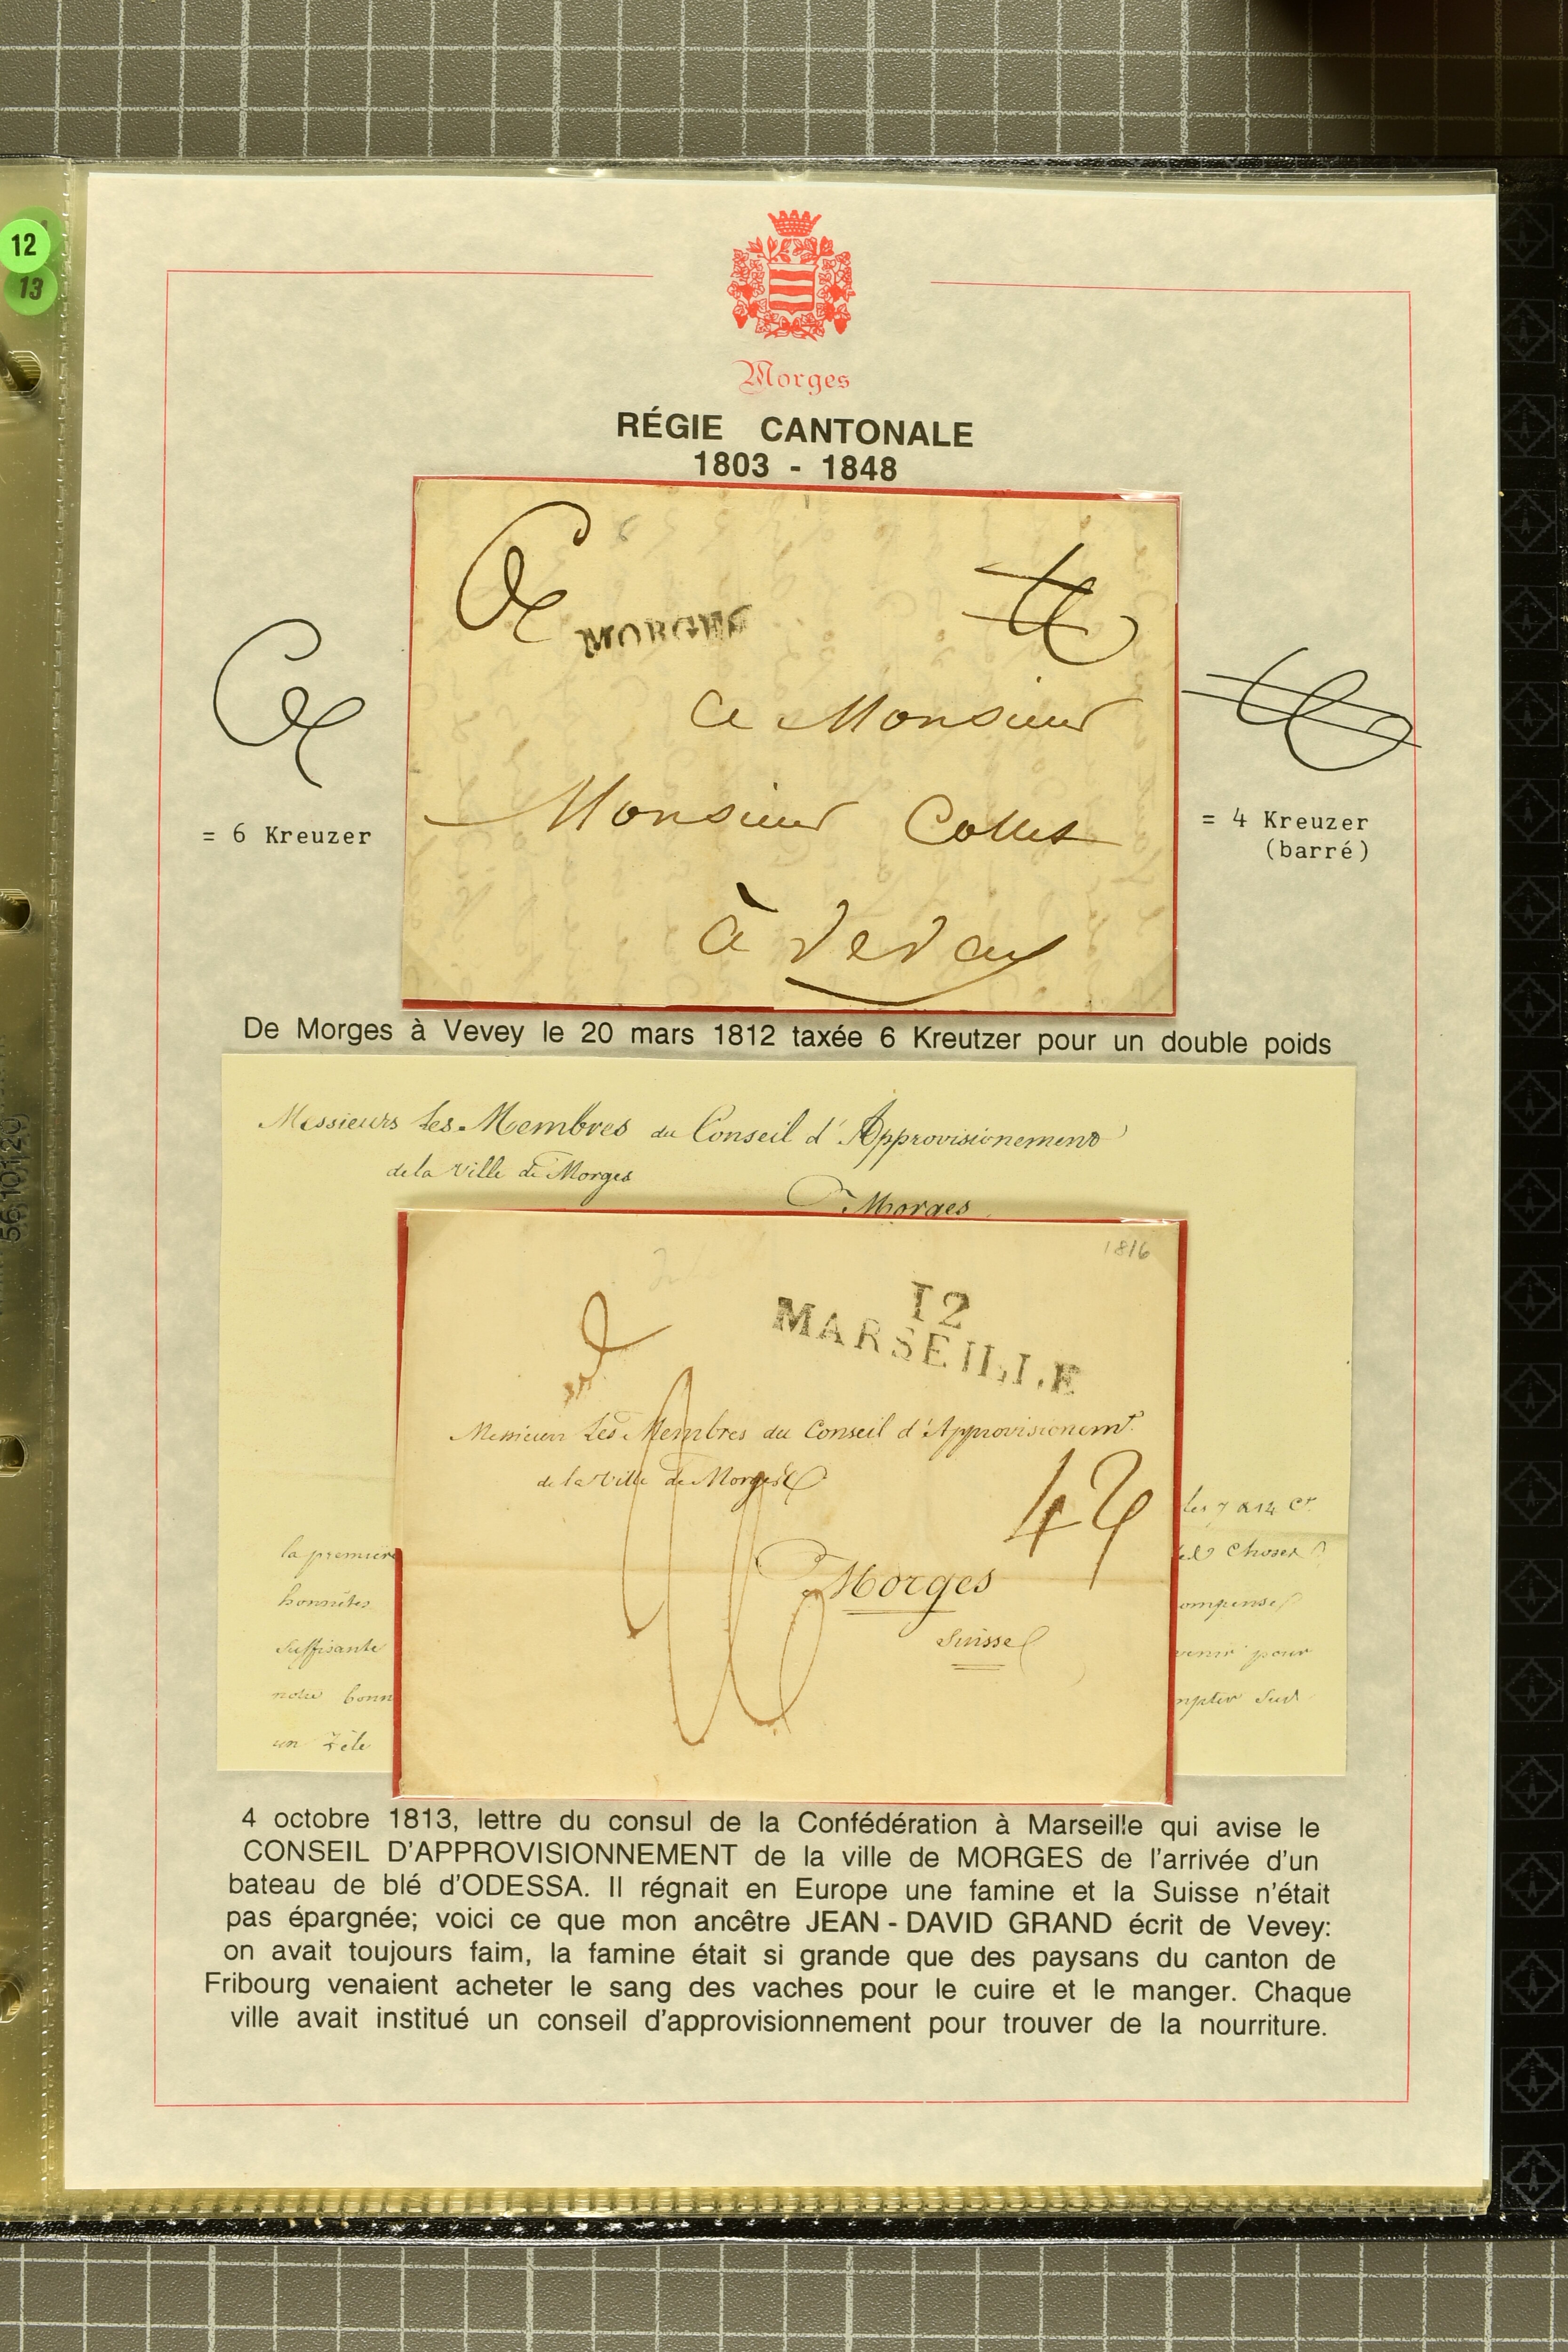 12
13
Morges
RÉGIE CANTONALE
1803 - 1848
MORGES
a Monsieur
Monsieur Collet
à Vevay
= 6 Kreuzer
= 4 Kreuzer
(barré)
De Morges à Vevey le 20 mars 1812 taxée 6 Kreutzer pour un double poids
Messieurs Les Membres du Conseil d'Approvisionement
de la Ville de Morges
Morges
1816
12
MARSEILLE
Messieurs Les Membres du Conseil d'Approvisionemt
de la Ville de Morges
Morges
Suisse
la premiere
honnêtes
suffisante
notre bonn
un Zèle
les 7 & 14 Ct
choses
ompense
venir pour
mpter sur
4 octobre 1813, lettre du consul de la Confédération à Marseille qui avise le
CONSEIL D'APPROVISIONNEMENT de la ville de MORGES de l'arrivée d'un
bateau de blé d'ODESSA. Il régnait en Europe une famine et la Suisse n'était
pas épargnée; voici ce que mon ancêtre JEAN - DAVID GRAND écrit de Vevey:
on avait toujours faim, la famine était si grande que des paysans du canton de
Fribourg venaient acheter le sang des vaches pour le cuire et le manger. Chaque
ville avait institué un conseil d'approvisionnement pour trouver de la nourriture.